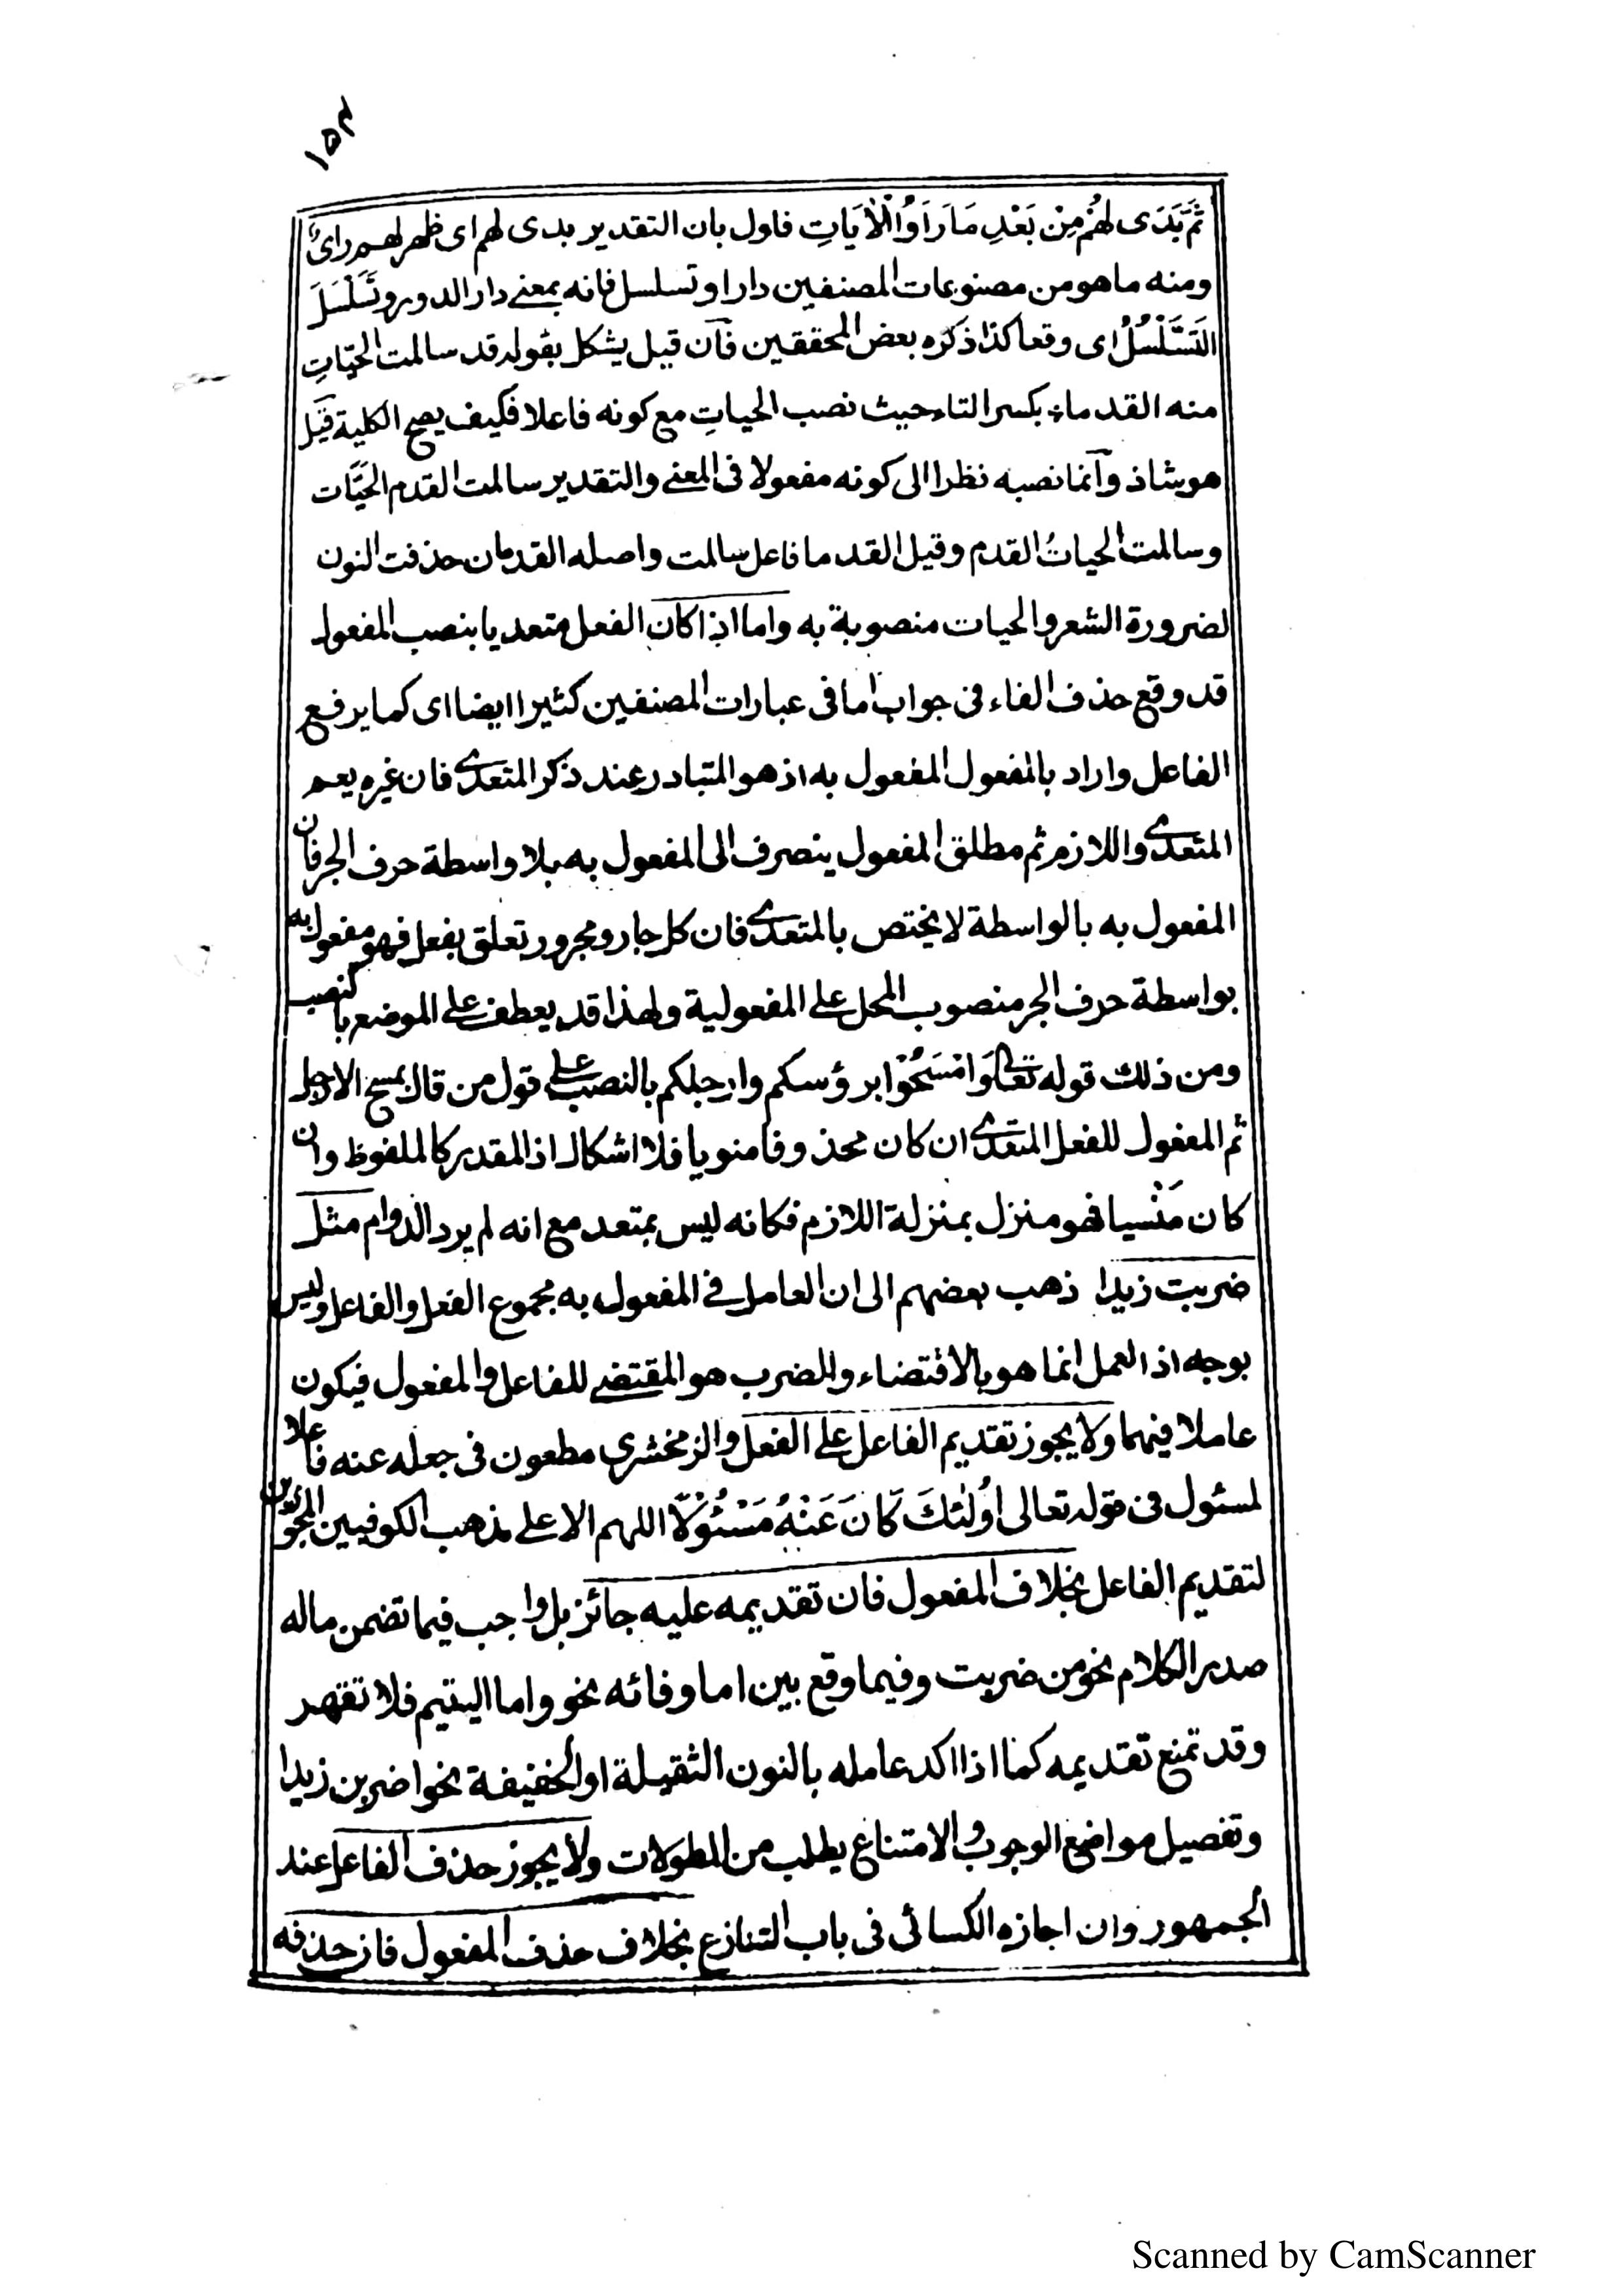 ١٥٢
ثُمَّ بَدَى لَهُمْ مِنْ بَعْدِ مَا رَاَوُا الْاٰيَاتِ فاول بان التقدير بدى لهم اى ظهر لهم راىٌ
ومنه ما هو من مصنوعات المصنفين دارا وتسلسل فانه بمعنى دار الدور وتَسَلْسَلَ
التَسَلْسُلُ اى وقعا كذا ذكره بعض المحققين فان قيل يشكل بقوله قد سالمت الحيّاتِ
منه القدما٪ بكسر التاء حيث نصب الحياتِ مع كونه فاعلا فكيف يصح الكلية قيل
هو شاذ وانما نصبه نظرا الى كونه مفعولا فى المعنى والتقدير سالمت القدم الحيّات
وسالمت الحياتُ القدم وقيل القدما فاعل سالمت واصله القدمان حذفت النون
لضرورة الشعر والحيات منصوبة به واما اذا كان الفعل متعديا بنصب المفعول
قد وقع حذف الفاء فى جواب اما فى عبارات المصنفين كثيرا ايضا اى كما يرفع
الفاعل واراد بالمفعول المفعول به اذ هو المتبادر عند ذكر المتعدى فان غيره يعم
المتعدى واللازم ثم مطلق المفعول ينصرف الى المفعول به بلا واسطة حرف الجر فان
المفعول به بالواسطة لا يختص بالمتعدى فان كل جار ومجرور تعلق بفعل فهو مفعول به
بواسطة حرف الجر منصوب المحل على المفعولية ولهذا قد يعطف على الموضع بالنصب
ومن ذلك قوله تعالى وَامْسَحُوْا برؤسكم وارجلكم بالنصب على قول من قال بمسح الارجل
ثم المفعول للفعل المتعدى ان كان محذوفا منويا فلا اشكال اذ المقدر كالملفوظ وان
كان مَنْسيا فهو منزل بمنزلة اللازم فكانه ليس بمتعد مع انه لم يرد الدوام مثل
ضربت زيدا ذهب بعضهم الى ان العامل فى المفعول به مجموع الفعل والفاعل وليس
بوجه اذ العمل انما هو بالاقتضاء والضرب هو المقتضى للفاعل والمفعول فيكون
عاملا فيهما ولا يجوز تقديم الفاعل على الفعل والزمخشرى مطعون فى جعله عنه فاعلا
لمسئول فى قوله تعالى اُولٰئكَ كَانَ عَنْهُ مَسْئُوْلًا اللهم الا على مذهب الكوفيين المجوّزين
لتقديم الفاعل بخلاف المفعول فان تقديمه عليه جائز بل واجب فيما تضمن ما له
صدر الكلام نحو من ضربت وفيما وقع بين اما وفائه نحو واما اليتيم فلا تقهر
وقد تمنع تقديمه كما اذا اكد عامله بالنون الثقيلة او الخفيفة نحو اضربن زيدا
وتفصيل مواضع الوجوب والامتناع يطلب من المطولات ولا يجوز حذف الفاعل عند
الجمهور وان اجازه الكسائى فى باب التنازع بخلاف حذف المفعول فان حذفه
Scanned by CamScanner